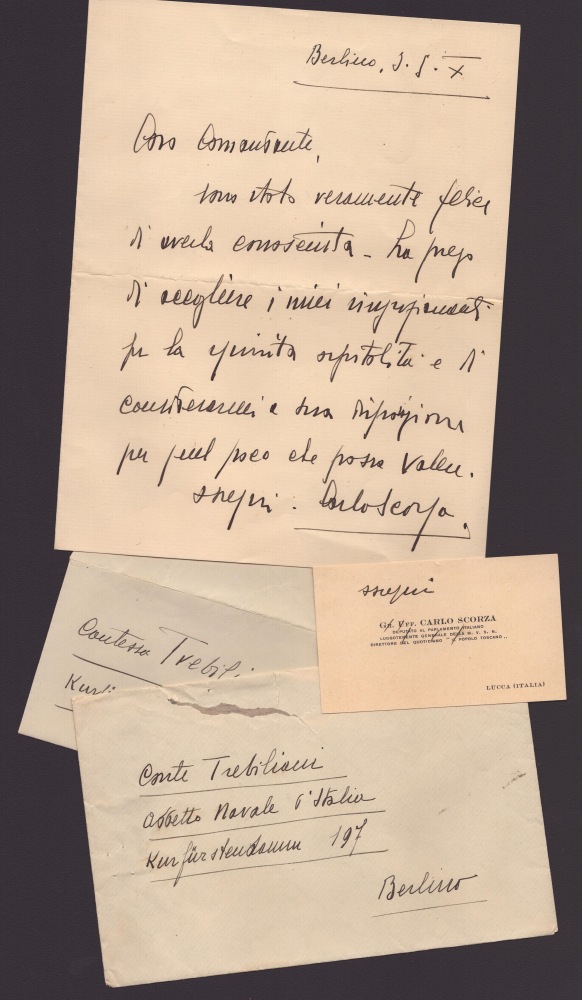 Berlino, 3.8.X
Caro Comandante,
sono stato veramente felice
di averla conosciuta - La prego
di accogliere i miei ringraziamenti
per la squisita ospitalità e di
considerarmi a sua disposizione
per quel poco che possa valere.
Carlo Scorza.
GR. UFF. CARLO SCORZA
DEPUTATO AL PARLAMENTO ITALIANO
LUOGOTENENTE GENERALE DELLA M. V. S. N.
DIRETTORE DEL QUOTIDIANO "IL POPOLO TOSCANO"
LUCCA (ITALIA)
Contessa Trebili
Kurf
Conte Trebiliani
Addetto Navale d'Italia
Kurfürstendamm 197
Berlino